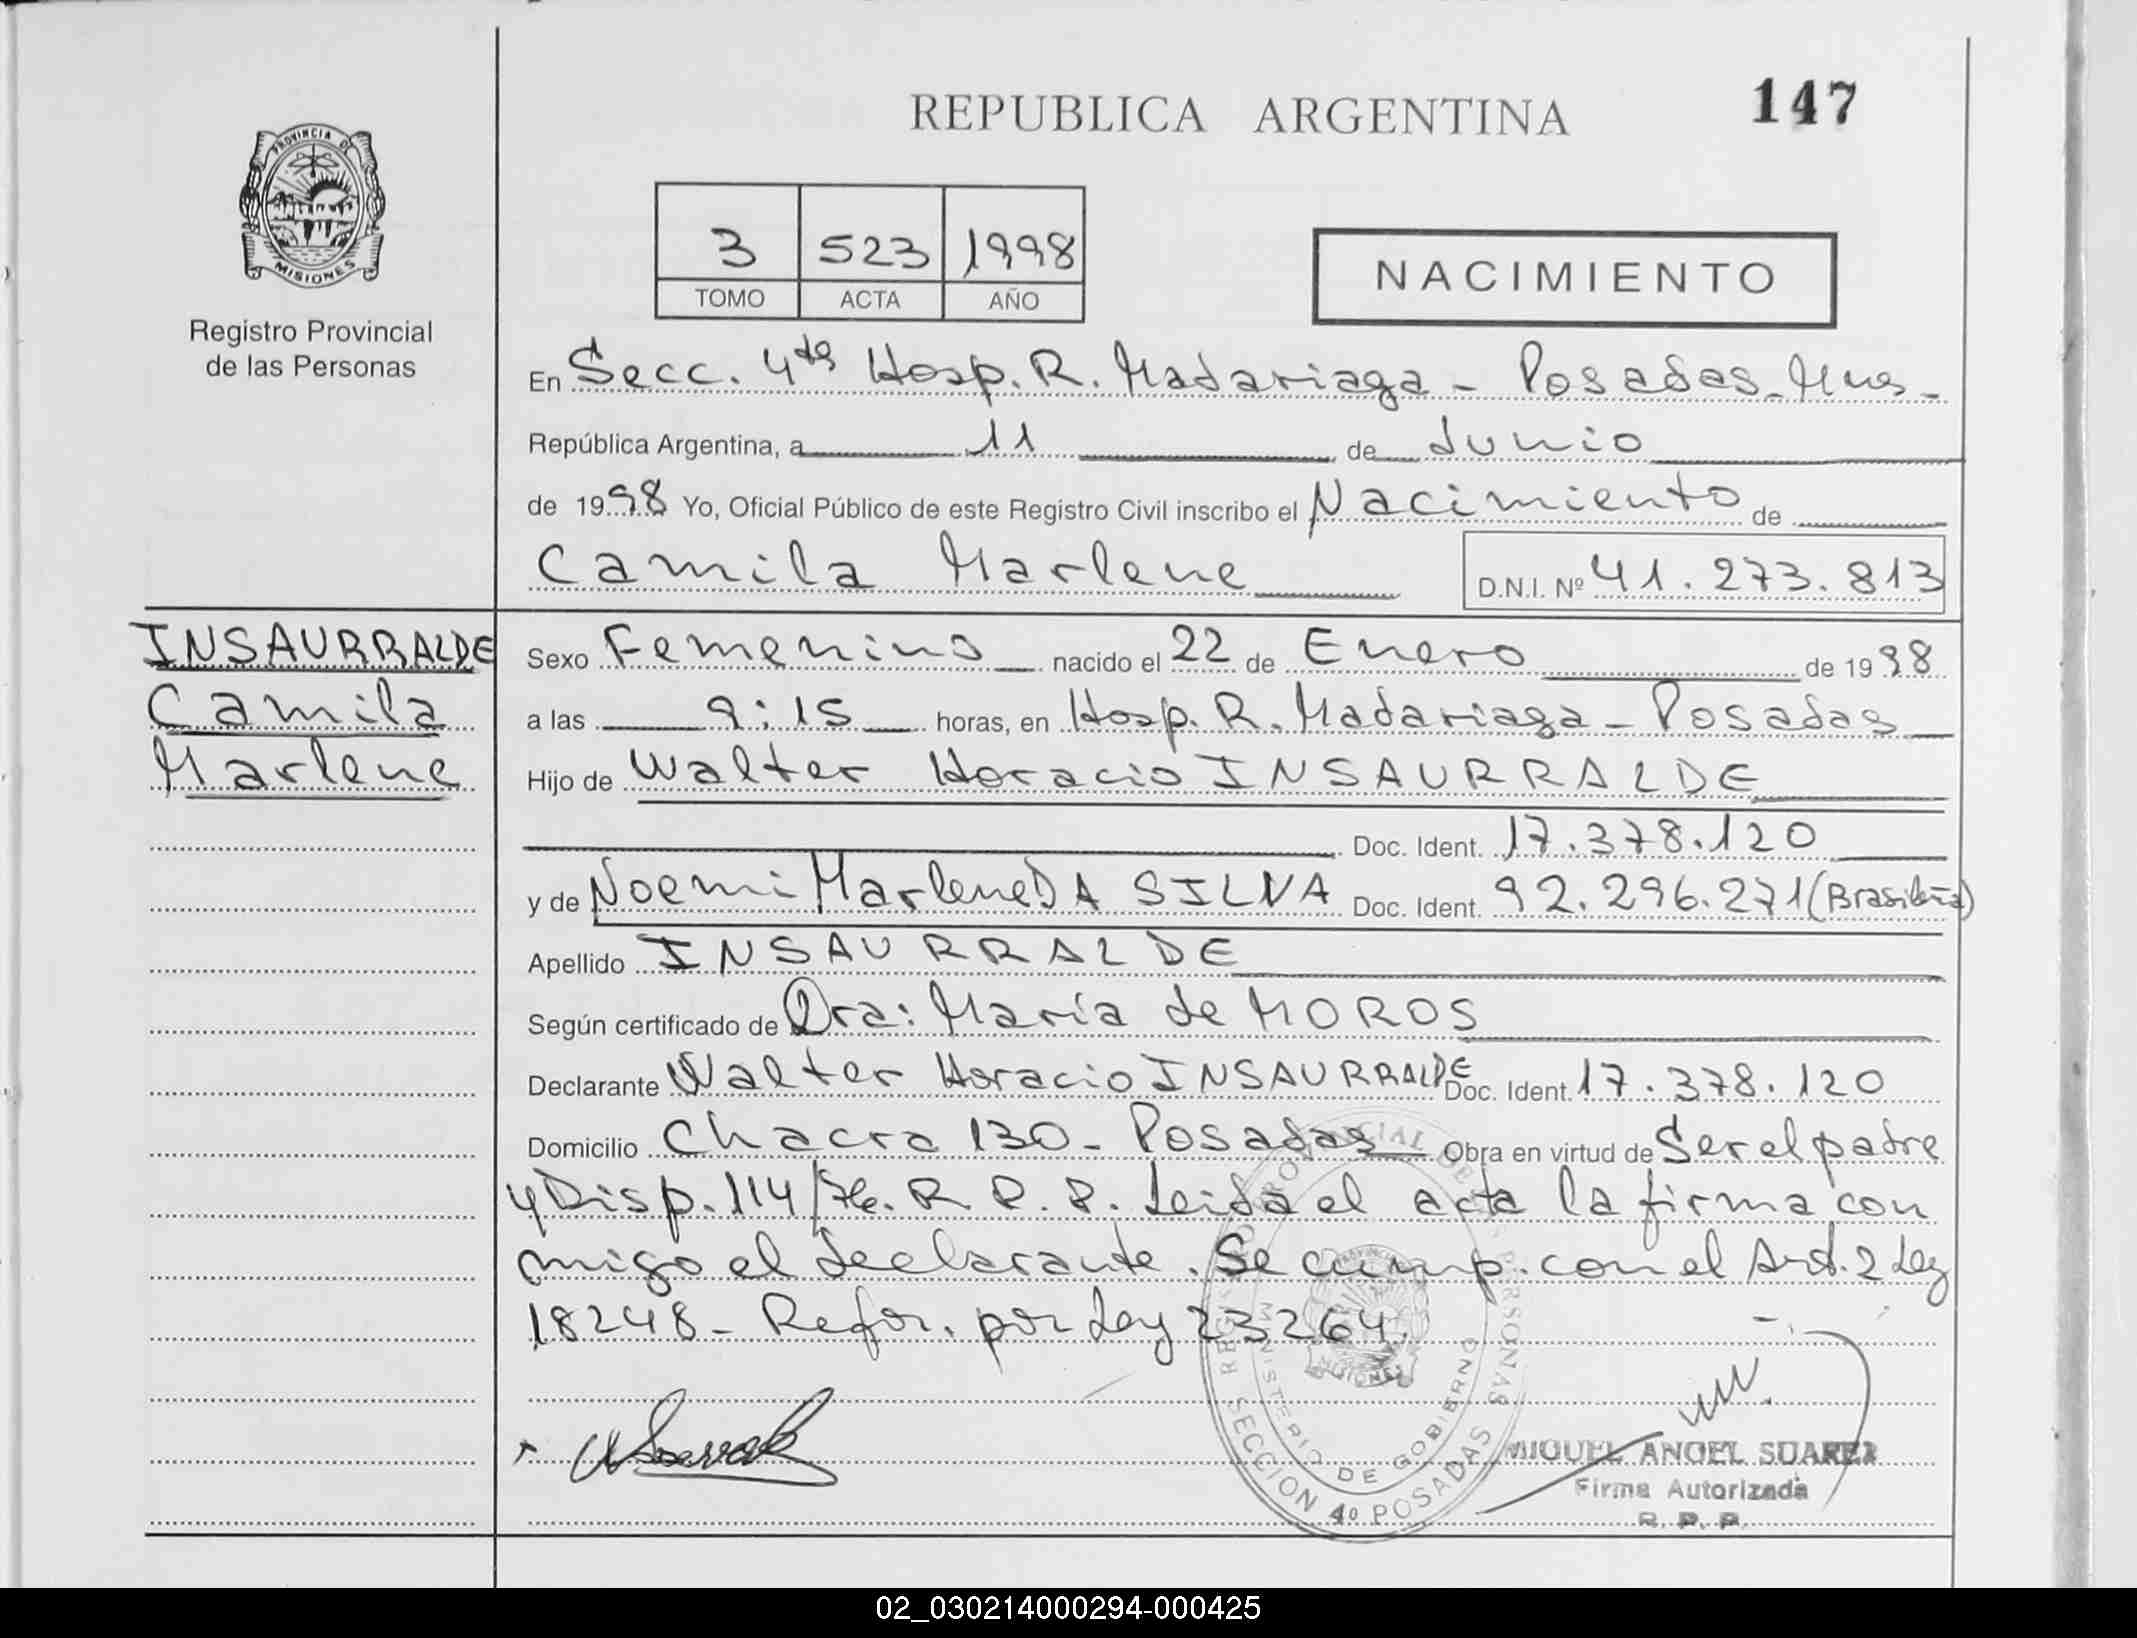 REPUBLICA ARGENTINA
147
PROVINCIA DE
MISIONES
Registro Provincial
de las Personas
3 523 1998
TOMO ACTA AÑO
NACIMIENTO
En Secc. 4ta Hosp. R. Madariaga - Posadas - Mnes -
República Argentina, a 11 de Junio
de 1998 Yo, Oficial Público de este Registro Civil inscribo el Nacimiento de
Camila Marlene D.N.I. Nº 41.273.813
INSAURRALDE
Camila
Marlene
Sexo Femenino nacido el 22 de Enero de 1998
a las 9:15 horas, en Hosp. R. Madariaga - Posadas
Hijo de Walter Horacio INSAURRALDE
Doc. Ident. 17.378.120
y de Noemi Marlene DA SILVA Doc. Ident. 92.296.271 (Brasileña)
Apellido INSAURRALDE
Según certificado de Dra: María de MOROS
Declarante Walter Horacio INSAURRALDE Doc. Ident. 17.378.120
Domicilio Chacra 130 - Posadas Obra en virtud de Ser el padre
y Disp. 114/76. R. P. P. Leida el acta la firma con
migo el declarante. Se cump. con el Art. 2 Ley
18248 - Refor. por Ley 23264.
REGISTRO PROVINCIAL DE LAS PERSONAS
MINISTERIO DE GOBIERNO
SECCION 4º POSADAS
MIGUEL ANGEL SUAREZ
Firma Autorizada
R. P. P.
02_030214000294-000425